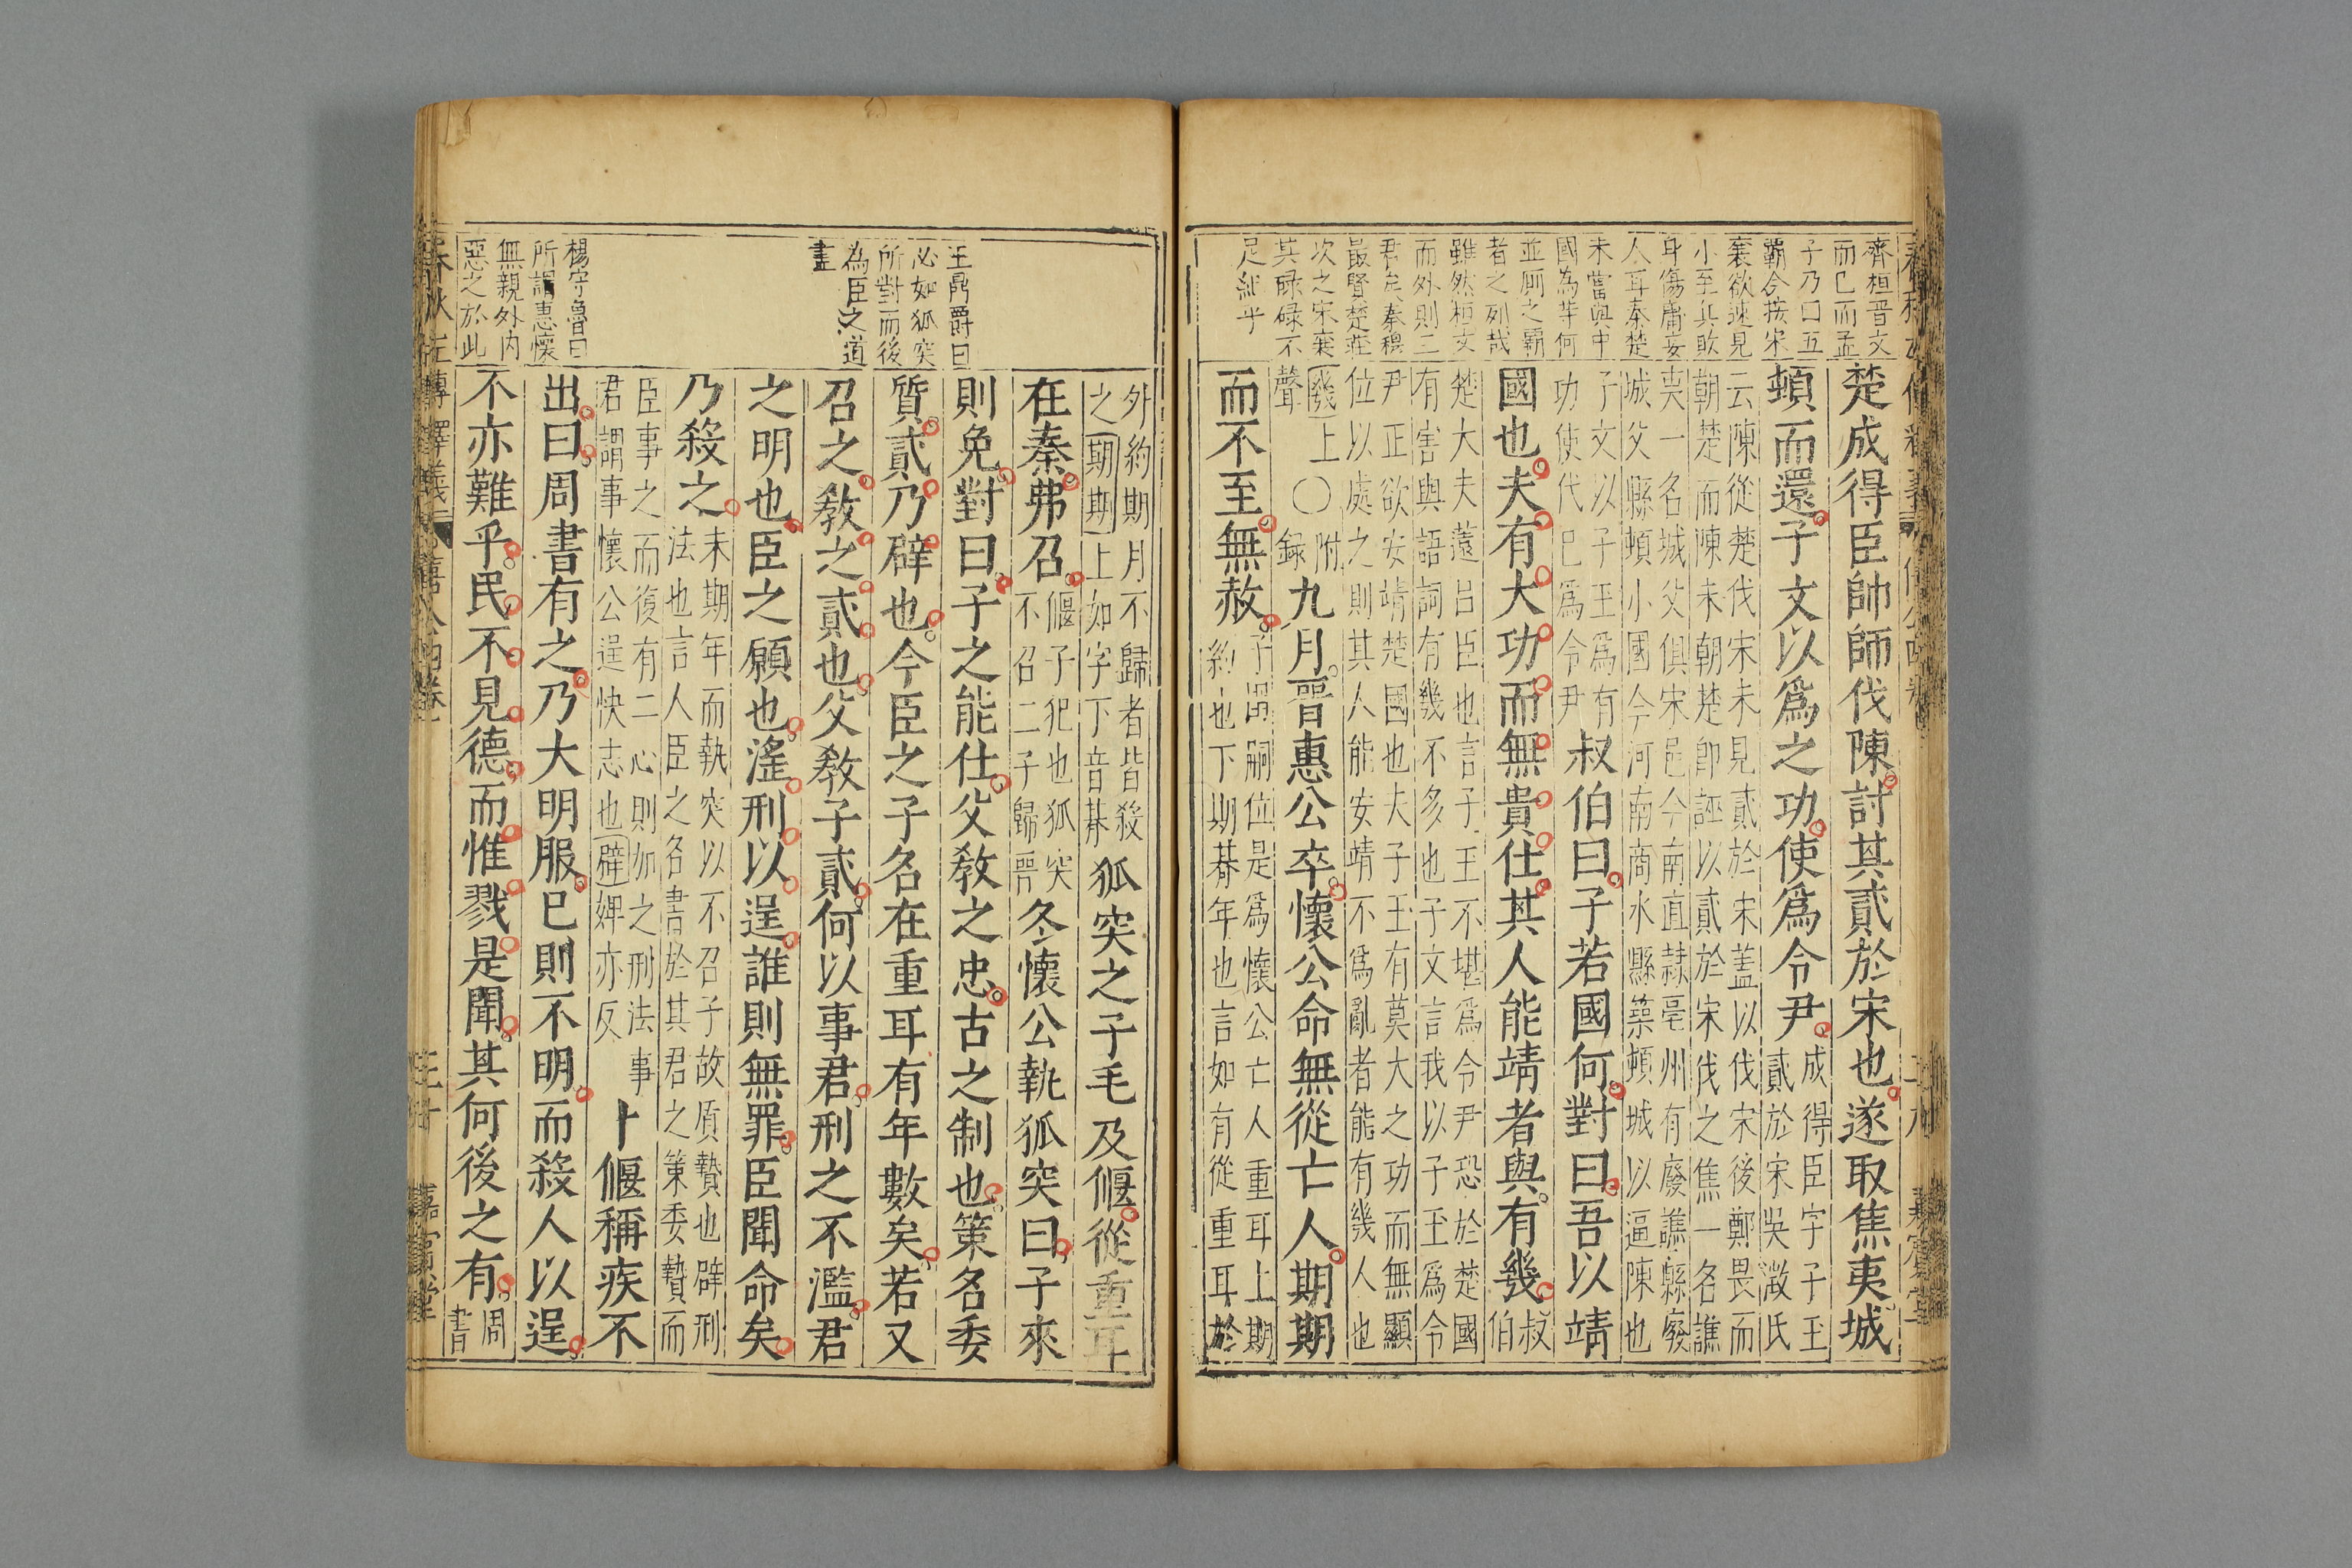 齊桓晉文
而已而孟
子乃曰五
霸今按宋
襄欲速見
小至其敗
身傷庸妄
人耳秦楚
未嘗與中
國為等何
並列之霸
者之列哉
雖然桓文
而外則三
君矣秦穆
最賢楚莊
次之宋襄
其碌碌不
足紀乎
楚成得臣帥師伐陳討其貳於宋也遂取焦夷城
頓而還子文以爲之功使爲令尹成得臣字子玉
貳於宋吳澂氏
云陳從楚伐宋未見貳於宋蓋以伐宋後鄭畏而
朝楚而陳未朝楚卽誣以貳於宋伐之焦一名譙
夷一名城父俱宋邑今南直隸亳州有廢譙縣廢
城父縣頓小國今河南商水縣築頓城以逼陳也
子文以子玉爲有
功使代已爲令尹叔伯曰子若國何對曰吾以靖
國也夫有大功而無貴仕其人能靖者與有幾叔
伯
楚大夫薳呂臣也言子玉不堪爲令尹恐於楚國
有害與語詞有幾不多也子文言我以子玉爲令
尹正欲安靖楚國也夫子玉有莫大之功而無顯
位以處之則其人能安靖不爲亂者能有幾人也
幾上
聲〇附
録九月晉惠公卒懷公命無從亡人期期
而不至無赦子圉嗣位是爲懷公亡人重耳上期
約也下期朞年也言如有從重耳於
王鼎爵曰
必如狐突
所對而後
為臣之道
盡
楊守魯曰
所謂惠懷
無親外内
惡之於此
外約期月不歸者皆殺
之期期上如字下音朞狐突之子毛及偃從重耳
在秦弗召偃子犯也狐突
不召二子歸晉冬懷公執狐突曰子來
則免對曰子之能仕父教之忠古之制也策名委
質貳乃辟也今臣之子名在重耳有年數矣若又
召之教之貳也父教子貳何以事君刑之不濫君
之明也臣之願也淫刑以逞誰則無罪臣聞命矣
乃殺之未期年而執突以不召子故質贄也辟刑
法也言人臣之名書於其君之策委贄而
臣事之而復有二心則加之刑法事
君謂事懷公逞快志也辟婢亦反卜偃稱疾不
出曰周書有之乃大明服已則不明而殺人以逞
不亦難乎民不見德而惟戮是聞其何後之有周
書
春秋左傳釋義 僖公 四卷 三十 嘉賓堂